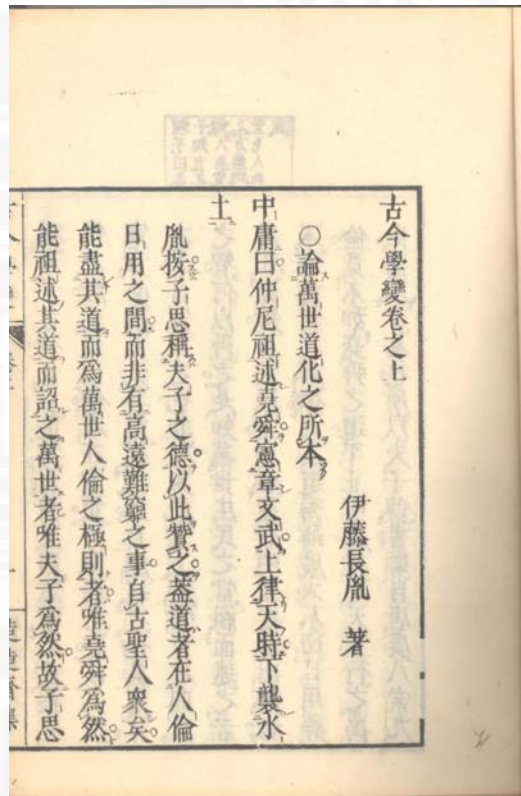 古今學變卷之上
伊藤長胤 著
○論萬世道化之所本
中庸曰仲尼祖述堯舜憲章文武上律天時下襲水
土
胤按子思稱夫子之德以此贊之蓋道者在人倫
日用之間而非有高遠難窮之事自古聖人衆矣
能盡其道而爲萬世人倫之極則者唯堯舜爲然
能祖述其道而詔之萬世者唯夫子爲然故子思